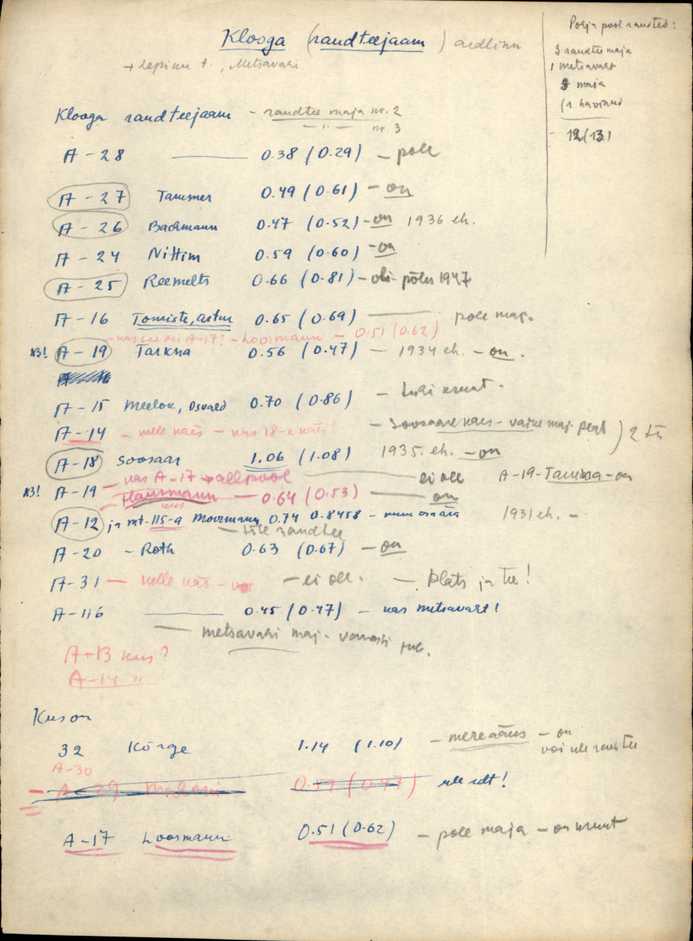 Klooga (raudteejaam) aedlinn
→ Lepiku t., Metsavari
Põhja pool raudteed:
3 raudtee maja
1 metsavart
8 maja
12 (13)
Klooga raudteejaam - raudtee maja nr. 2
- " - nr. 3
A - 28 — 0.38 (0.29) - pole
A - 27 Tammer 0.49 (0.61) - on
A - 26 Bachmann 0.47 (0.52) - on 1936 eh.
A - 24 Nittim 0.59 (0.60) - on
A - 25 Reemets 0.66 (0.81) - oli põles 1947
A - 16 Tomiste, Artur 0.65 (0.69) — pole maj.
A-17? - Loosmann - 0.51 (0.62)
N3! A - 19 Tarkna 0.56 (0.47) - 1934 eh. - on.
A - 15 Meelox, Osvald 0.70 (0.86) -
A - 14 - nelle näes - vas 18-e
- Soosaare näes - väike maj. peal ) 2
A - 18 Soosaar 1.06 (1.08) 1935. eh. - on
- vas A - 17 → allpool — ei ole A-19-Tarkna - on
N3! A - 19 - Hausmann - 0.64 (0.53) — on
A - 12 ja mt. 115-a Moormann 0.74 0.8458 - 1931 eh. -
- üle raudtee
A - 20 - Roth 0.63 (0.67) - on
A - 31 - nelle näes - - ei ole. - Plats ja tee!
A - 116 — 0.45 (0.47) - vas metsavart!
— metsavahi maj. vanasti
A - 13 kus?
A - 14 "
Kus on
32 Kõrge 1.14 (1.10) - mereääres - on
või üle raudtee
A-30
A - 29
üle edt!
A - 17 Loosmann 0.51 (0.62) - pole maja - on krunt